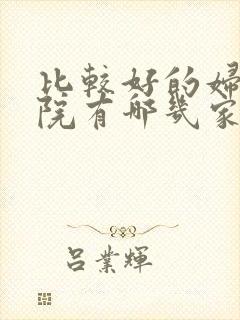 比較好的婦
院有哪幾家
呂業輝